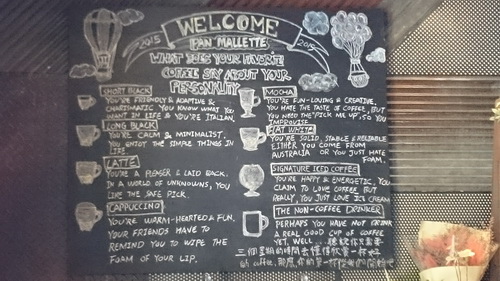 WELCOME
2015
2015
PAN MALLETTE
WHAT DOES YOUR FAVORITE
COFFEE SAY ABOUT YOUR
PERSONALITY
SHORT BLACK
YOU'RE FRIENDLY & ADAPTIVE &
CHARISMATIC. YOU KNOW WHAT YOU
WANT IN LIFE & YOU'RE ITALIAN.
LONG BLACK
YOU'RE CALM & MINIMALIST,
YOU ENJOY THE SIMPLE THINGS IN
LIFE
LATTE
YOU'RE A & LAID BACK,
IN A WORLD OF UNKNOWNS, YOU
LIKE THE SAFE PICK.
CAPPUCCINO
YOU'RE WARM-HEARTED & FUN,
YOUR FRIENDS HAVE TO
REMIND YOU TO WIPE THE
FOAM OF YOUR LIP.
MOCHA
YOU'RE FUN-LOVING & CREATIVE,
YOU HATE THE TASTE OF COFFEE, BUT
YOU NEED THE "PICK ME UP", SO YOU
IMPROVISE
FLAT WHITE
YOU'RE SOLID, STABLE & RELIABLE
EITHER YOU COME FROM
AUSTRALIA OR YOU JUST HATE
FOAM.
SIGNATURE ICED COFFEE
YOU'RE HAPPY & ENERGETIC, YOU
CLAIM TO LOVE COFFEE BUT
REALLY, YOU JUST LOVE ICE CREAM
THE NON-COFFEE DRINKER
PERHAPS YOU HAVE NOT DRINK
A REAL GOOD CUP OF COFFEE
YET. WELL...
三個星期的時間去懂得欣賞一杯好
coffee,